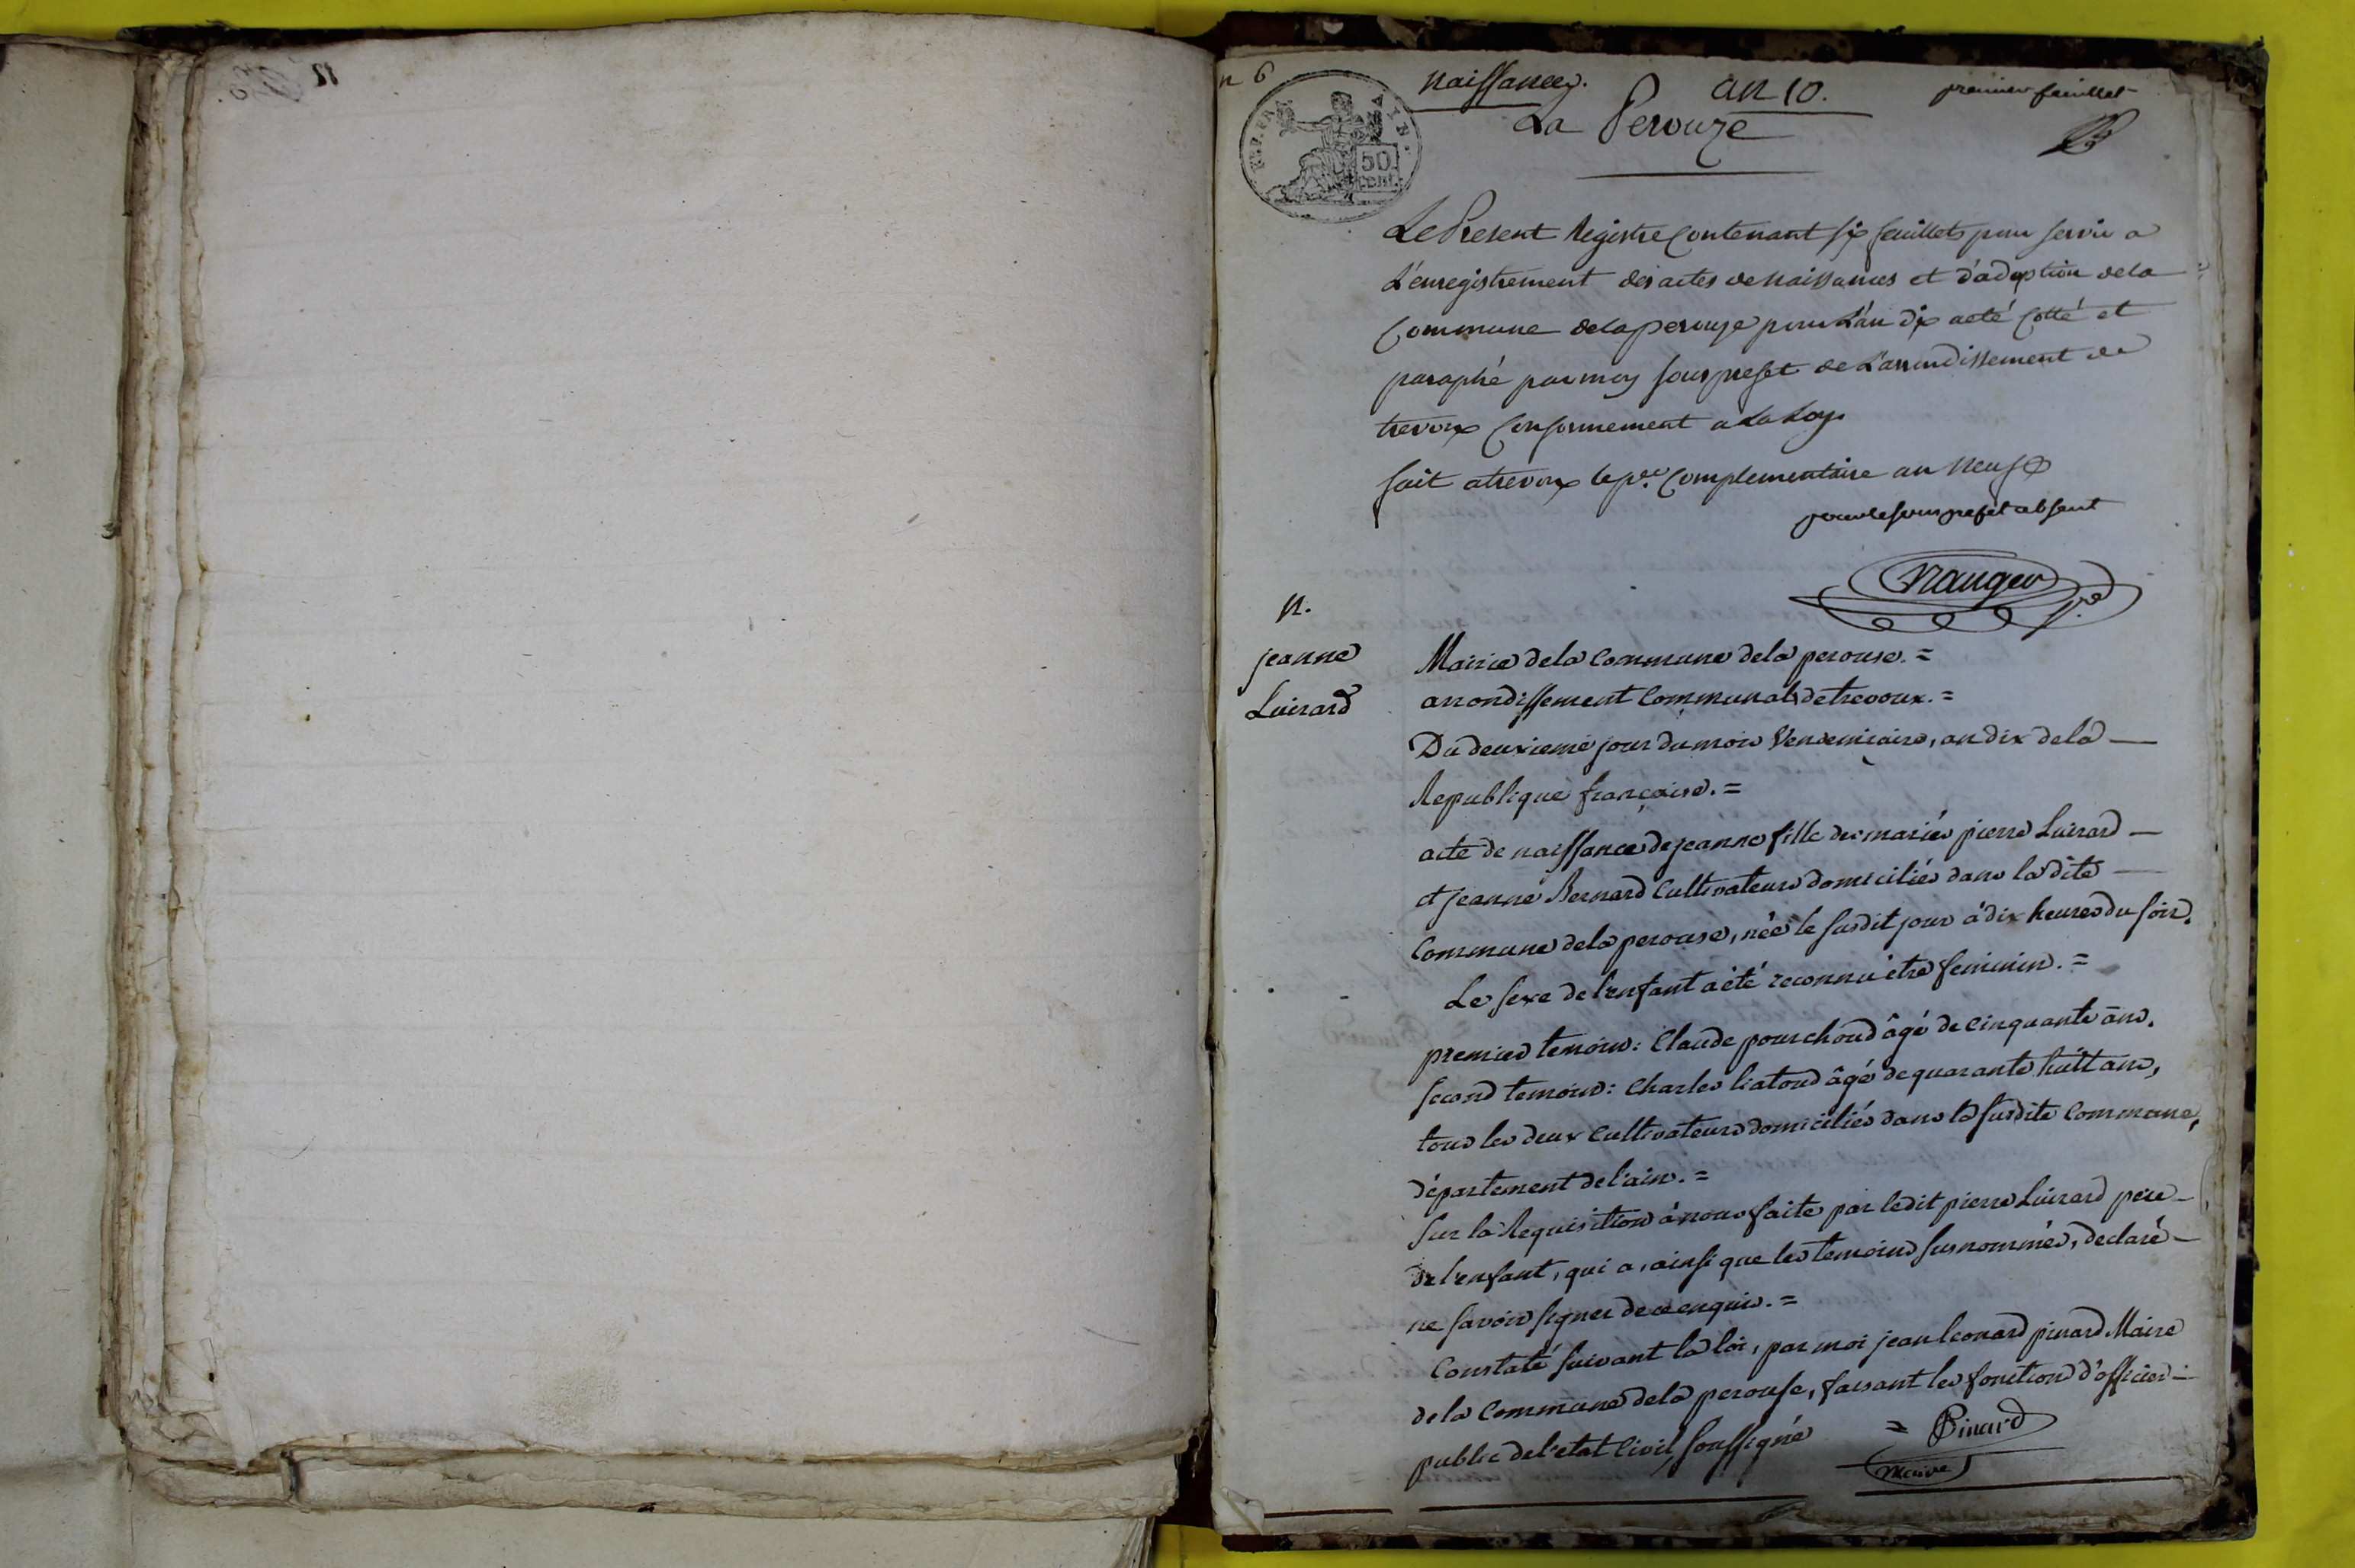 n 6
naissances. an 10. premier feuillet
La Perouze
REP. FRA
50
cent.
Le Present Registre contenant six feuillets pour servir a
L'enregistrement des actes de naissances et d'adoption de la
Commune de la perouze pour L'an dix a eté Cotté et
paraphé par moy sous prefet de L'arrondissement de
trevoux Conformement a La Loy
fait a trevoux le p.er Complementaire an Neuf
pour le sous prefet absent
n.
jeanne
Luirard
Mairie de la Commune de la perouse. =
arrondissement Communal de trevoux. =
Du deuxieme jour du mois Vendemiaire, an dix de la
Republique française. =
acte de naissance de jeanne fille des mariés pierre Luirard
et jeanne Bernard Cultivateurs domiciliés dans la dite
Commune de la perouse, née le susdit jour à dix heures du soir.
Le sexe de l'enfant a été reconnu être feminin. =
premier temoin: Claude pourchoud âgé de Cinquante ans.
second temoin: Charles liatoud âgé de quarante huit ans,
tous les deux Cultivateurs domiciliés dans la susdite Commune,
département de l'ain. =
Sur la Requisition à nous faite par ledit pierre Luirard pere
de l'enfant, qui a, ainsi que les temoins susnommés, declaré
ne savoir signer de ce enquis. =
Constaté suivant la loi, par moi jean leonard pinard Maire
de la Commune de la perouse, faisant les fonctions d'officier
public de l'etat Civil, soussigné = Pinard
maire